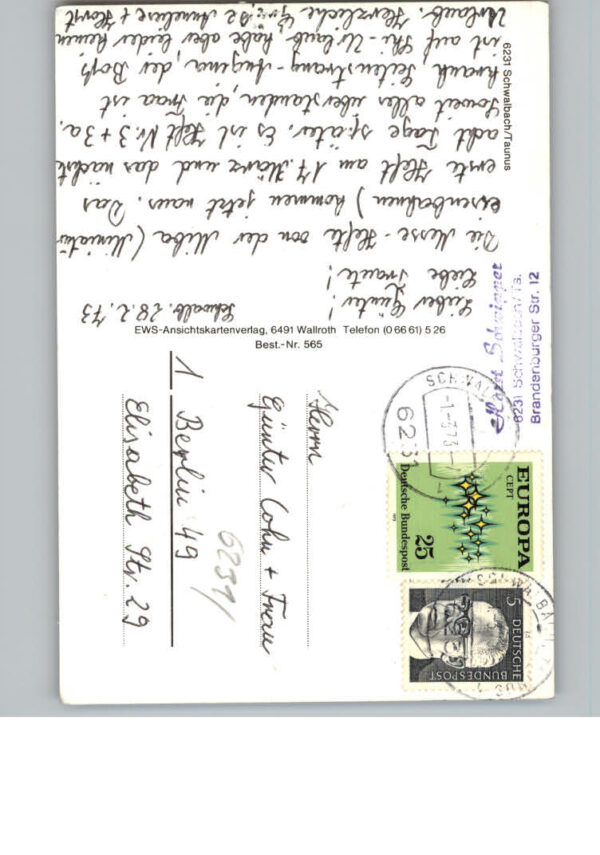 Schwalb. 28.2.73
Lieber Günter!
Liebe Traute!
Die Messe-Hefte von der Miba (Miniatur
eisenbahnen) kommen jetzt raus. Das
erste Heft am 17. März und das nächste
acht Tage später. Es ist Heft Nr. 3 + 3a.
Soweit alles überstanden, die Fraa ist
krank Seitenstrang-Angina, der Boß
ist auf Ski-Urlaub habe aber leider keinen
Urlaub. Herzliche Grüße Anneliese + Horst
6231 Schwalbach/Taunus
EWS-Ansichtskartenverlag, 6491 Wallroth Telefon (0 66 61) 5 26
Best.-Nr. 565
Horst Schwinger
6231 Schwalbach/Ts.
Brandenburger Str. 12
Herrn
Günter Cohn + Frau
1 Berlin 49
Elisabeth Str. 29
6239/
SCHWALB
-1.-3.73
6231
EUROPA
CEPT
Deutsche Bundespost
25
SCHWALBACH
5 DEUTSCHE
BUNDESPOST